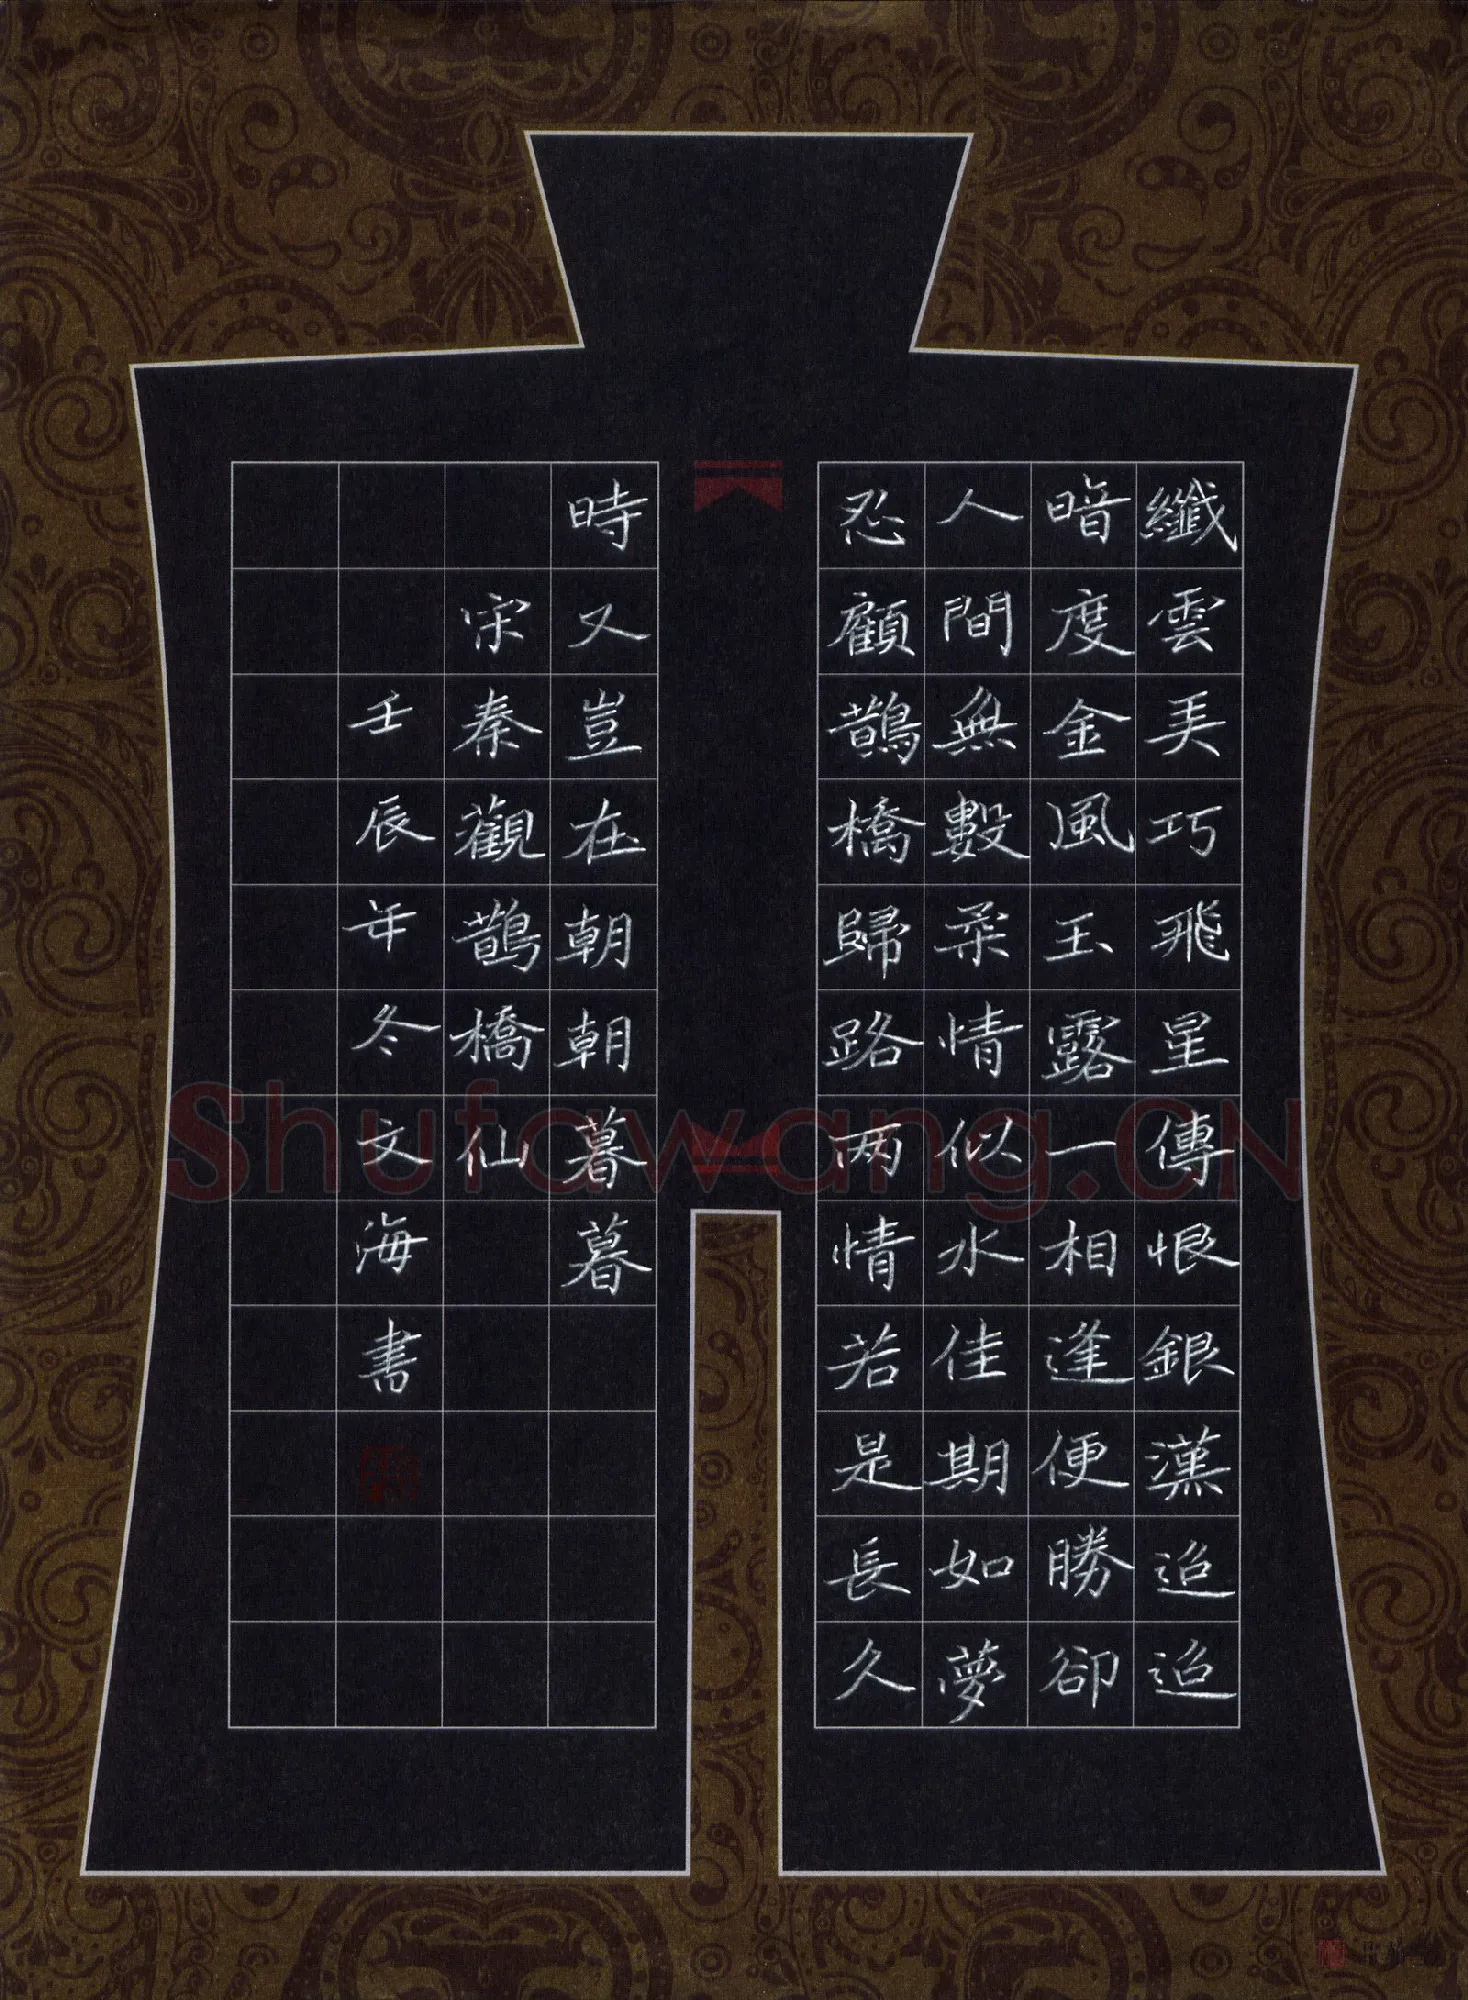 纖雲美巧飛星傳恨銀漢迢迢
暗度金風玉露一相逢便勝卻
人間無數柔情似水佳期如夢
忍顧鵲橋歸路两情若是長久
時又豈在朝朝暮暮
宋秦觀鵲橋仙
壬辰年冬文海書
Shufawang.CN